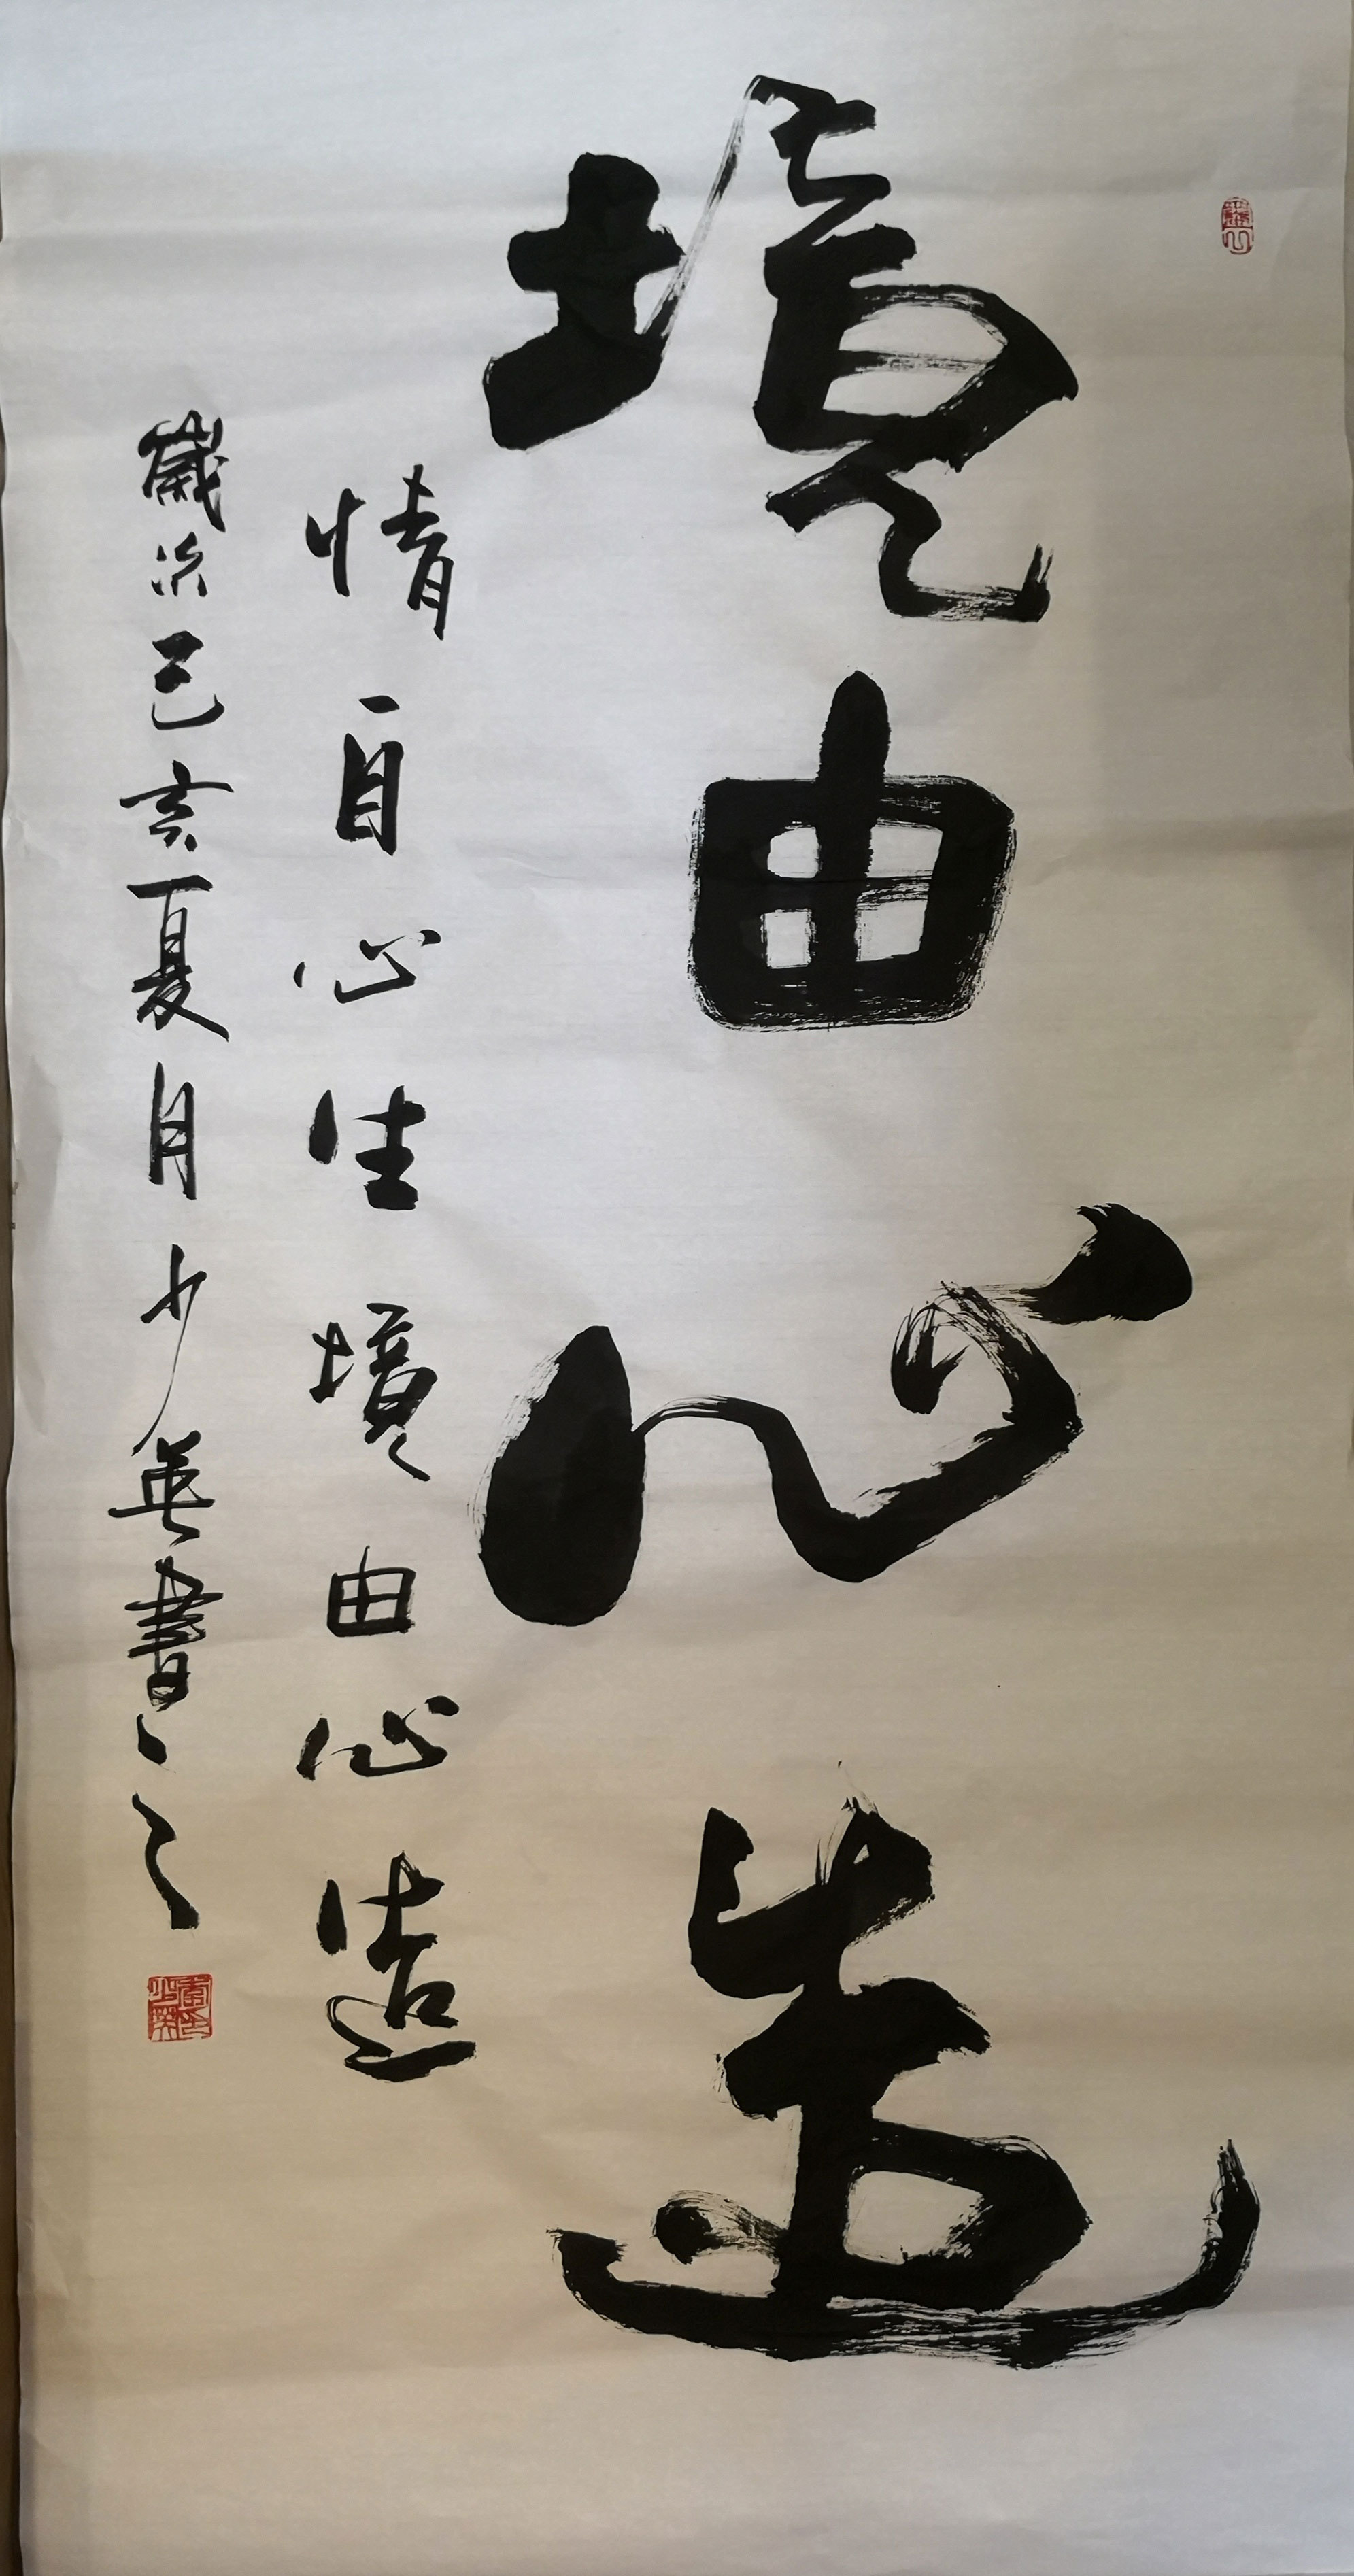 境由心造
情自心生境由心造
歲次己亥夏月少英書之